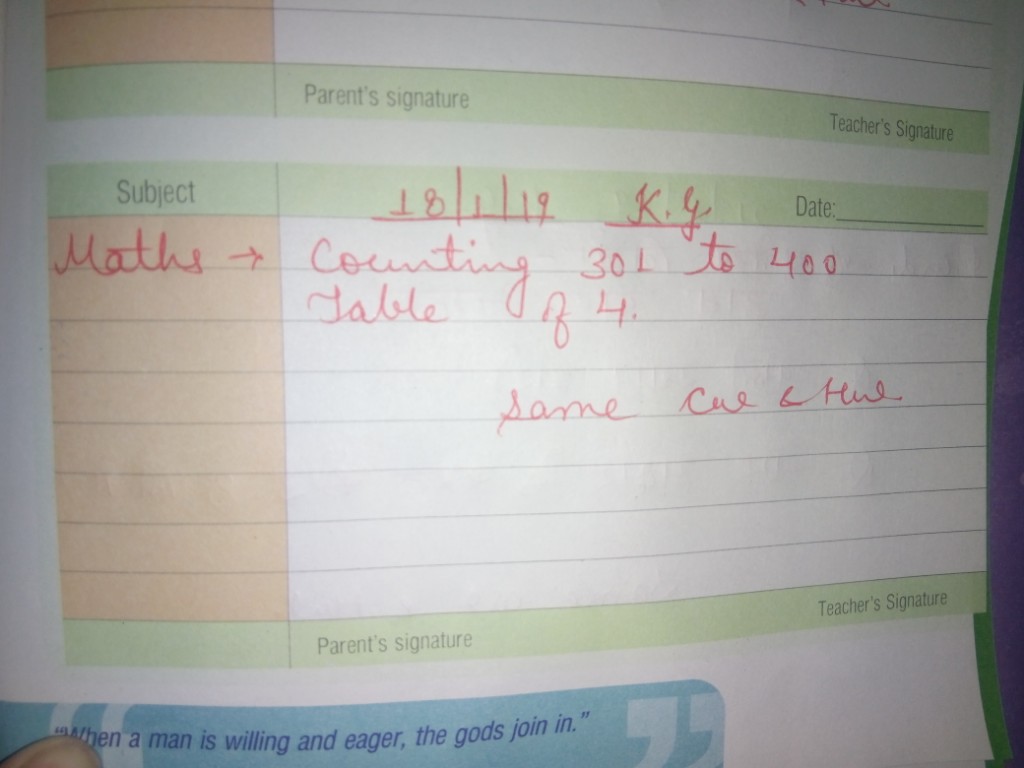 Parent's signature
Teacher's Signature
Subject 18/1/19 K.G Date:
Maths → Counting 301 to 400
Table of 4.
Same CW & HW
Parent's signature
Teacher's Signature
"When a man is willing and eager, the gods join in."